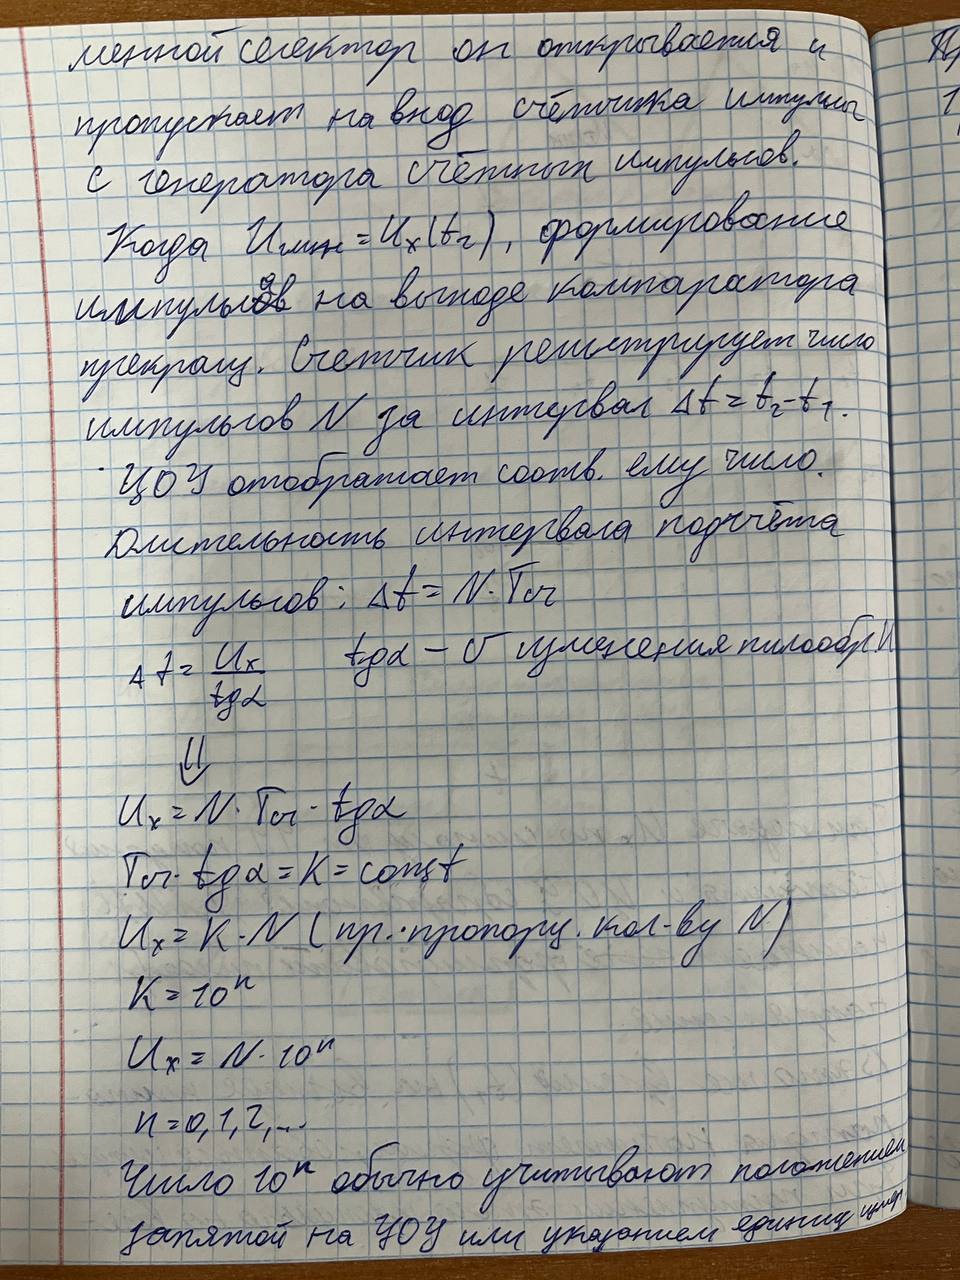 менной селектор он открывается и
пропускает на вход счётчика импульсы
с генератора счётных импульсов.
Когда Uлин = Uₓ(t₂), формирование
импульсов на выходе компаратора
прекращ. Счетчик регистрирует число
импульсов N за интервал Δt = t₂-t₁.
ЦОУ отображает соотв. ему число.
Длительность интервала подсчёта
импульсов: Δt = N·Tсч
Δt = Uₓ/tgα tgα – υ изменения пилообр. U
⇓
Uₓ = N·Tсч·tgα
Tсч·tgα = K = const
Uₓ = K·N (пр. пропорц. кол-ву N)
K = 10ⁿ
Uₓ = N·10ⁿ
n = 0, 1, 2, ...
Число 10ⁿ обычно учитывают положением
запятой на ЦОУ или указанием единиц измер.
Пр
1